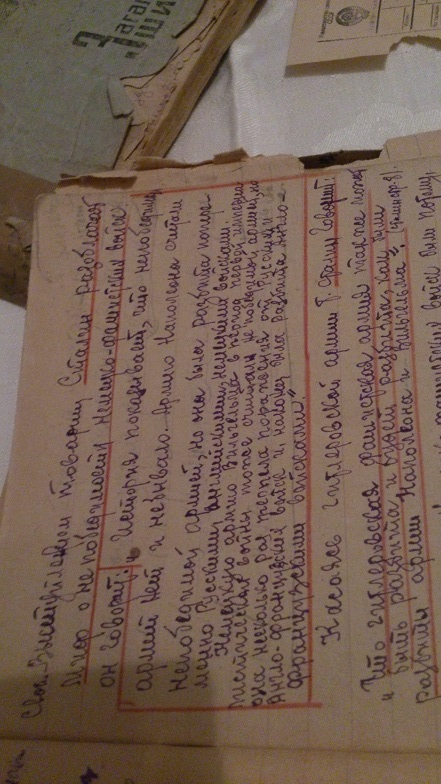 Своим выступлением товарищ Сталин разоблачает
Мифы о непобедимости немецко-фашистских войск
он говорит: "История показывает, что непобедимых
армий нет и не бывало. Армию Наполеона считали
непобедимой армией, но она была разбита попере-
менно Русскими, английскими, немецкими войсками.
Немецкую армию Вильгельма в период первой империа-
листической войны тоже считали не победимой армией, но
она несколько раз терпела поражения от Русских и
Англо-французских войск и, наконец была разбита Англо-
французскими войсками".
Касаясь гитлеровской армии т. Сталин говорит:
"Что гитлеровская фашистская армия также может
быть разбита и будет разбита, как были
разбиты армии Наполеона и Вильгельма"
войск был потому